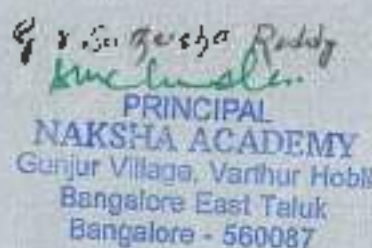 Reddy
PRINCIPAL
NAKSHA ACADEMY
Gunjur Village, Varthur Hobli
Bangalore East Taluk
Bangalore - 560087